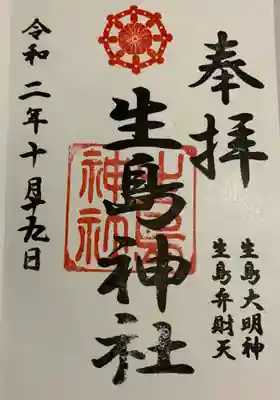 奉拝
生島大明神
生島弁財天
生島神社
生島神社
令和二年十月十九日